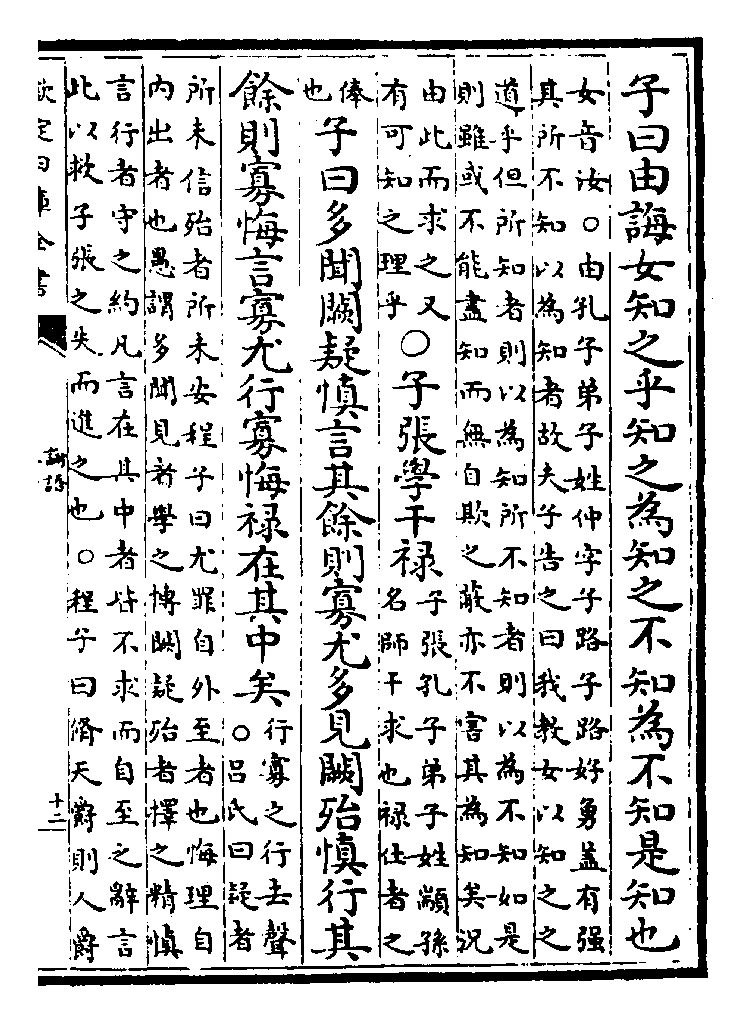 子曰由誨女知之乎知之為知之不知為不知是知也
女音汝○由孔子弟子姓仲字子路子路好勇蓋有强
其所不知以為知者故夫子告之曰我教女以知之之
道乎但所知者則以為知所不知者則以為不知如是
則雖或不能盡知而無自欺之蔽亦不害其為知矣況
由此而求之又
有可知之理乎
○子張學干禄
子張孔子弟子姓顓孫
名師干求也禄仕者之
俸
也
子曰多聞闕疑慎言其餘則寡尤多見闕殆慎行其
餘則寡悔言寡尤行寡悔禄在其中矣
行寡之行去聲
○呂氏曰疑者
所未信殆者所未安程子曰尤罪自外至者也悔理自
内出者也愚謂多聞見者學之博闕疑殆者擇之精慎
言行者守之約凡言在其中者皆不求而自至之辭言
此以救子張之失而進之也○程子曰脩天爵則人爵
欽定四庫全書
論語
十二